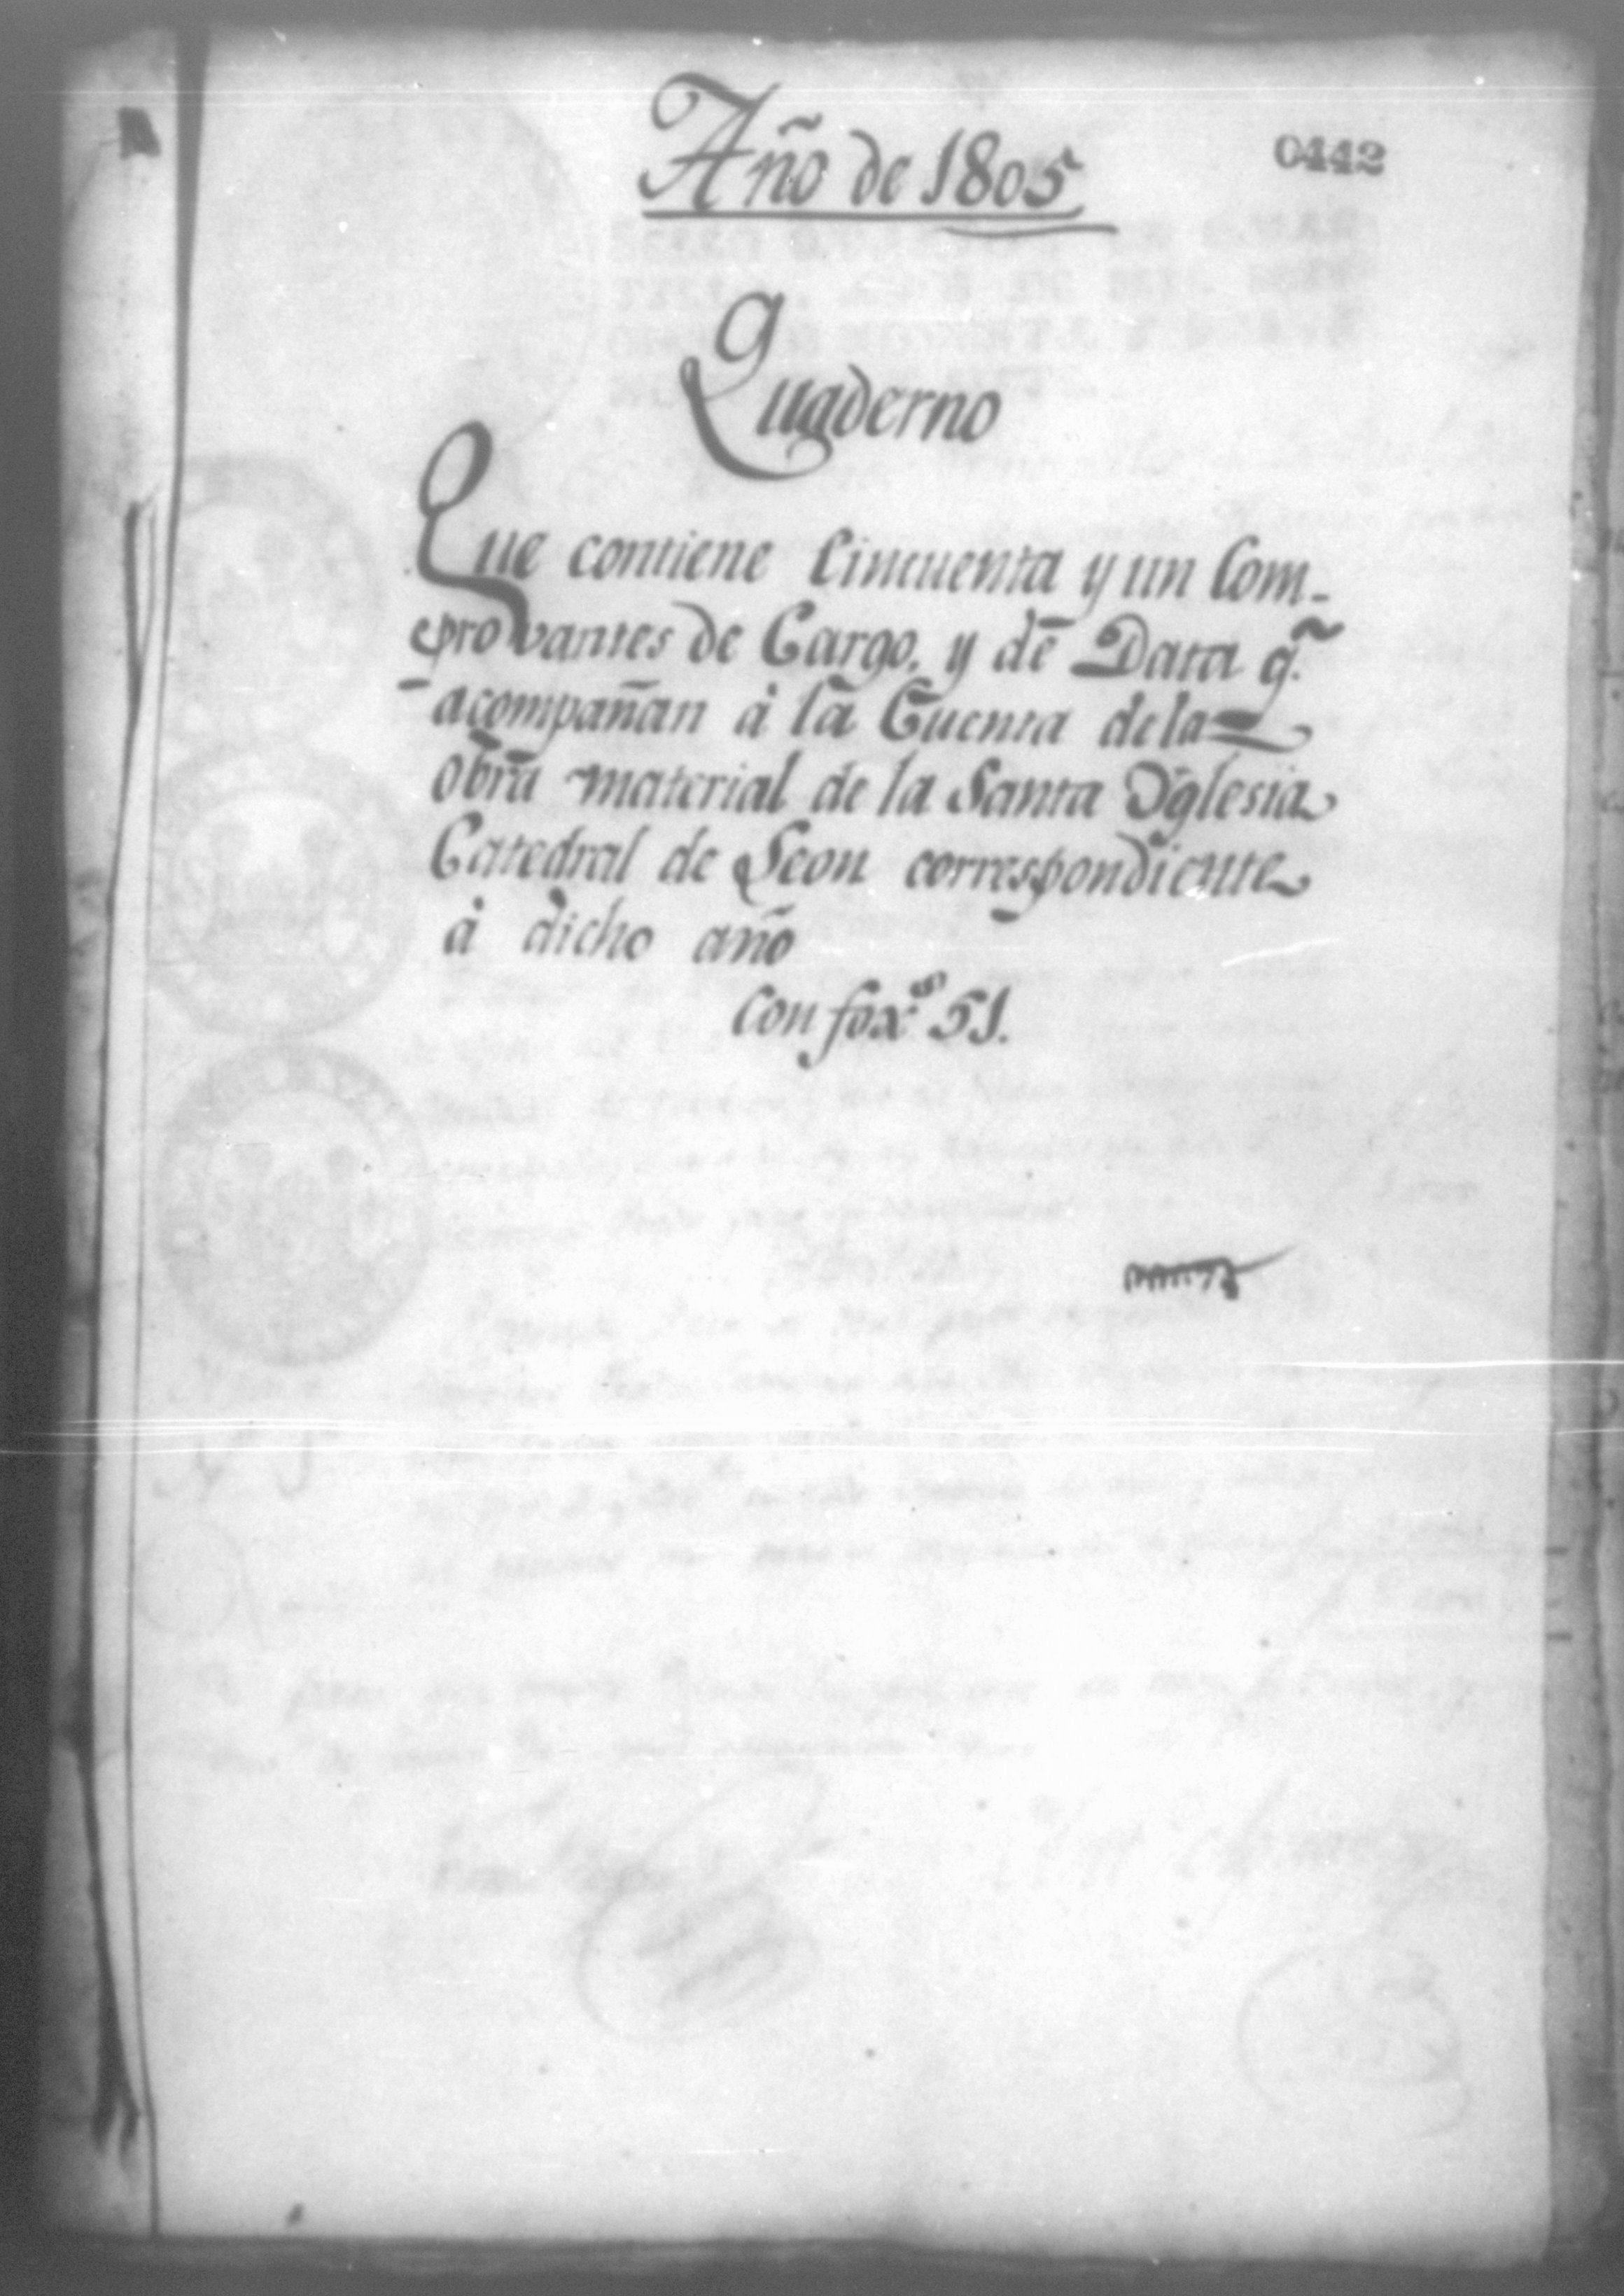 Año de 1805
0442
Quaderno
Que contiene Cincuenta y un Com-
provantes de Cargo, y de Data q.
acompañan à la Cuenta dela
obra material de la Santa Yglesia
Catedral de Leon correspondiente
à dicho año
Con fox.s 51.